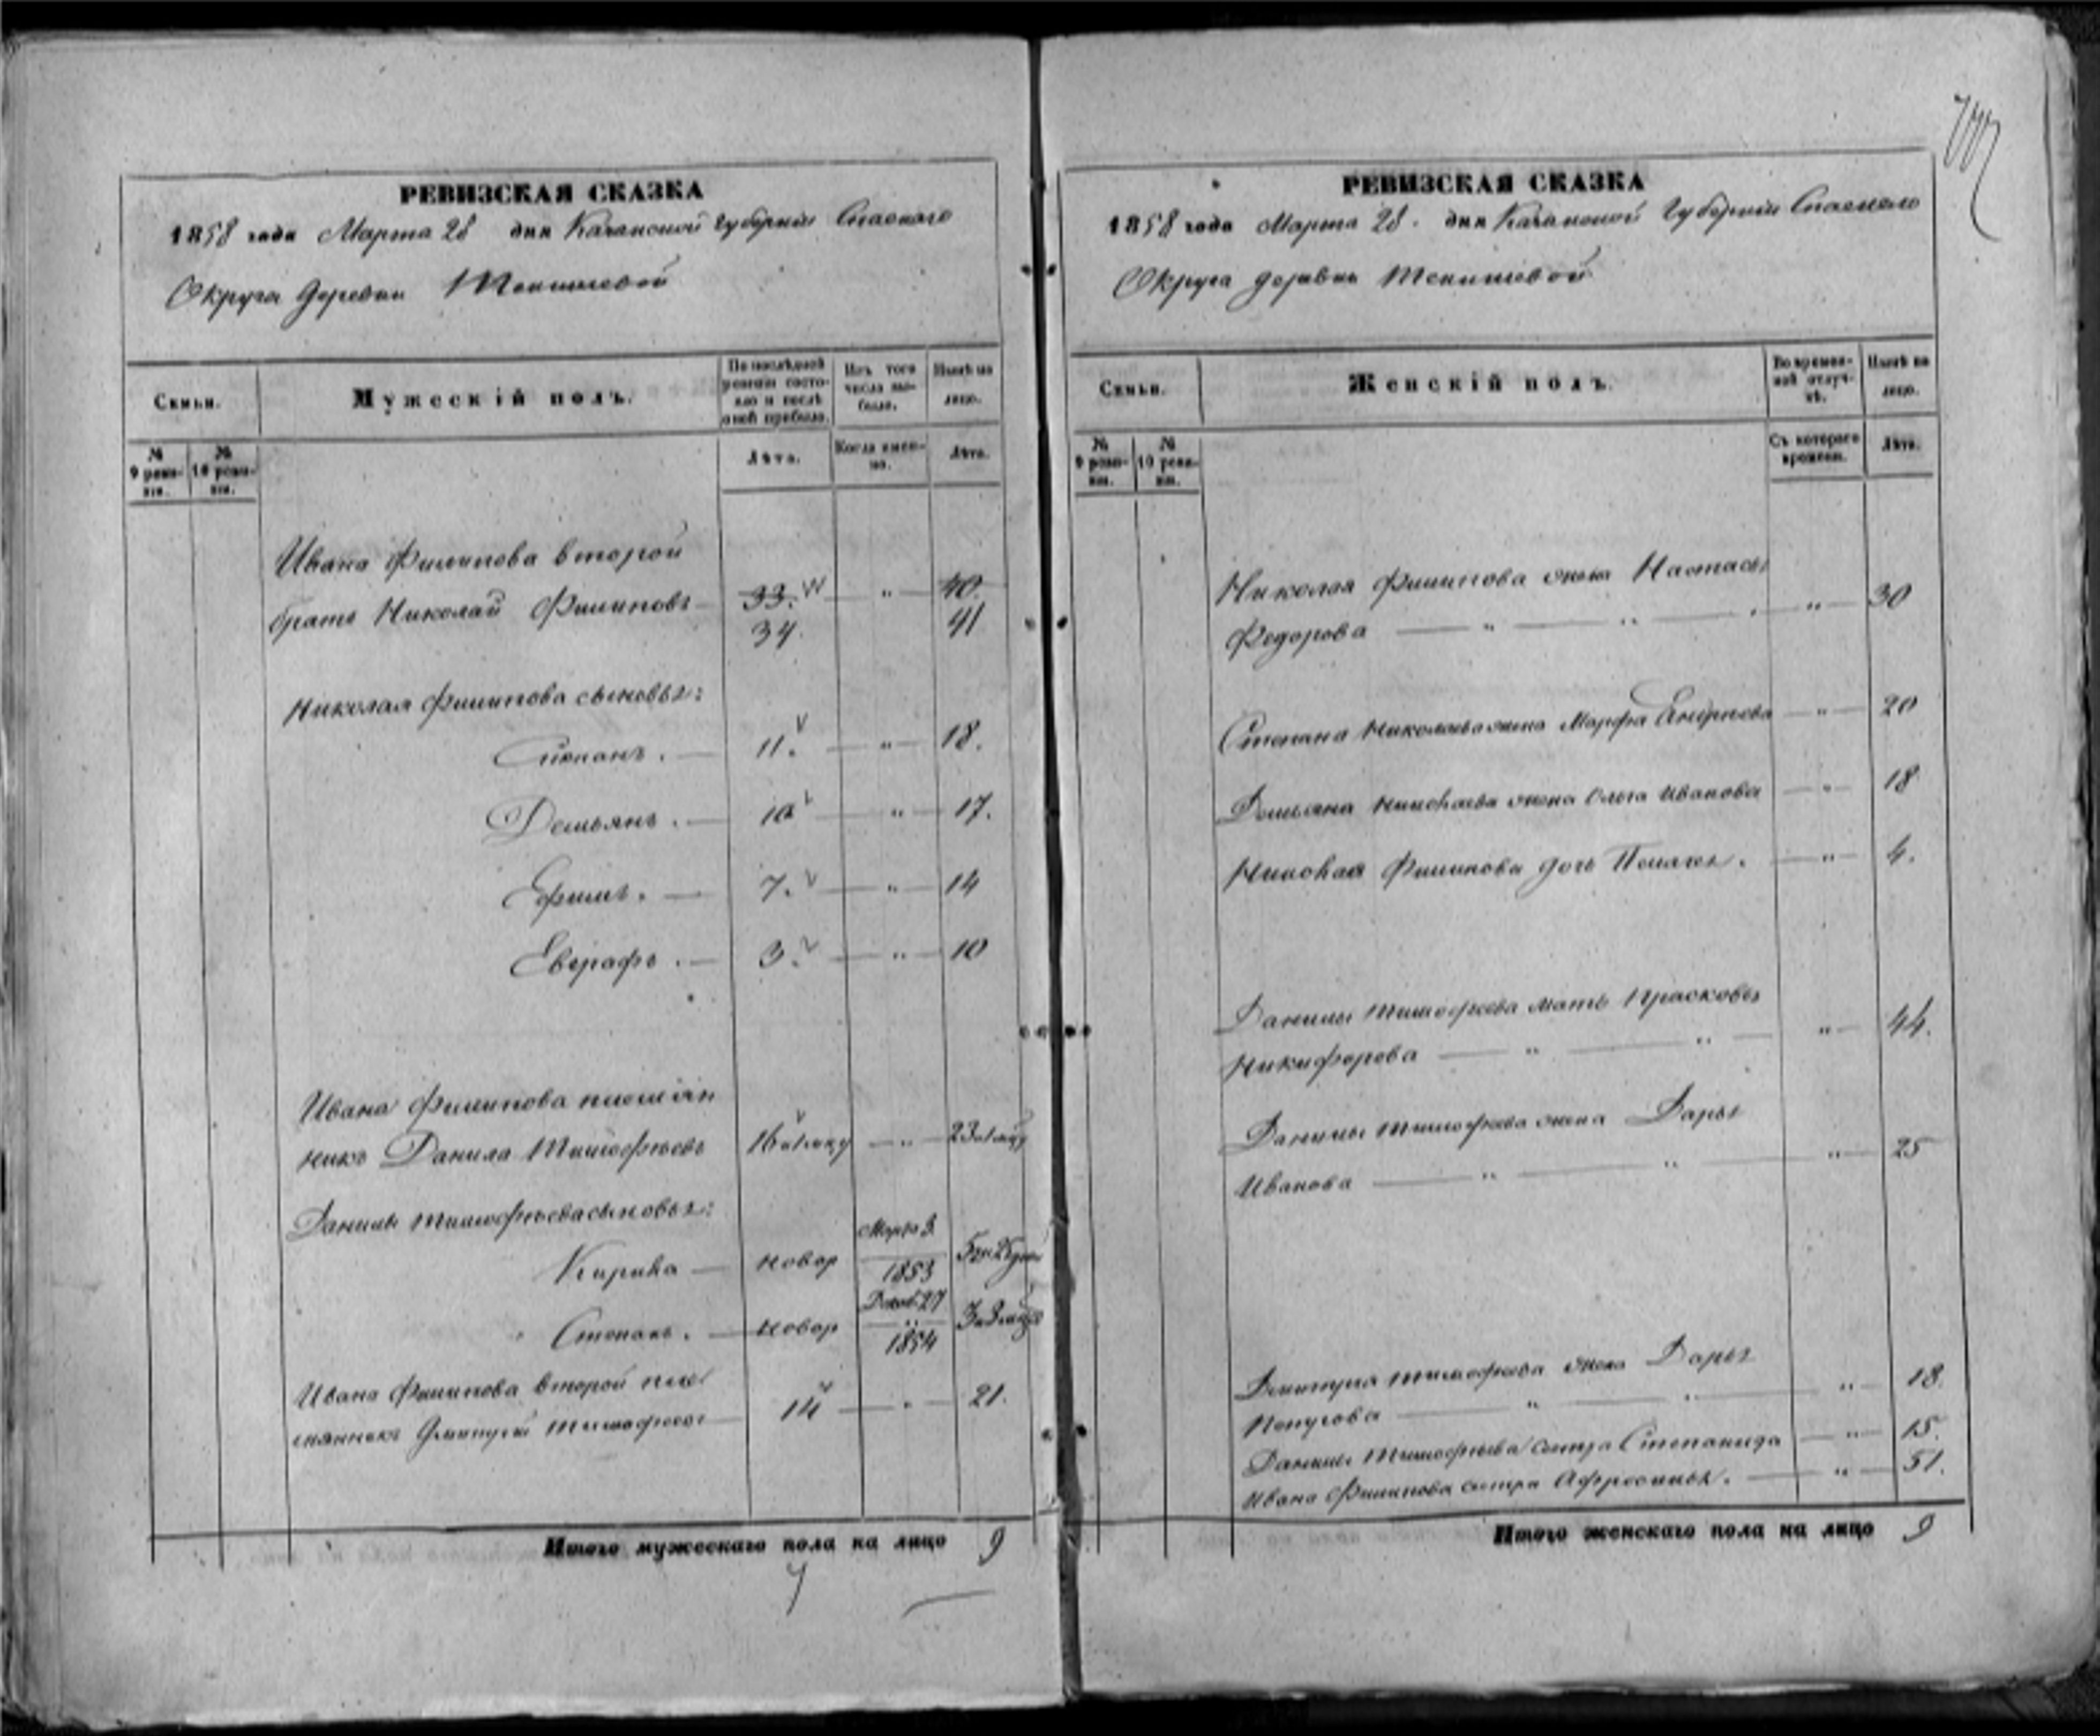 РЕВИЗСКАЯ СКАЗКА
1858 года Марта 28 дня Казанской губернии Спаскаго
Округа деревни Тенишевой
Семьи.
Мужескій полъ.
По послѣдней ревизіи состояло и послѣ оной прибыло.
Изъ того числа выбыло.
Нынѣ на лицо.
№ 9 ревизіи.
№ 10 ревизіи.
Лѣта.
Когда именно.
Лѣта.
Ивана Филипова второй
братъ Николай Филиповъ 33. " 40.
34. 41
Николая Филипова сыновья:
Степанъ. 11. " 18.
Демьянъ. 10 " 17.
Ефимъ. 7. " 14
Евграфъ. 3. " 10
Ивана Филипова племян
никъ Данила Тимофѣевъ 16 " 23
Данилы Тимофѣева сыновья:
Кирила новор Марта 3 1853
Степанъ. новор 27 1854
Ивана Филипова второй пле
мянникъ Дмитрій Тимофѣевъ 14 " 21.
Итого мужескаго пола на лицо 9
РЕВИЗСКАЯ СКАЗКА
1858 года Марта 28. дня Казанской губерніи Спаскаго
Округа деревни Тенишевой
Семьи.
Женскій полъ.
Во временной отлучкѣ.
Нынѣ на лицо.
№ 9 ревизіи.
№ 10 ревизіи.
Съ котораго времени.
Лѣта.
Николая Филипова жена Настасья
Федорова " " " 30
Степана Николаева жена Марфа " 20
Демьяна Николаева жена Ольга Иванова " 18
Николая Филипова дочь " 4.
Данилы Тимофеева мать Прасковья
Никифорова " " " 44.
Данилы Тимофеева жена Дарья
Иванова " " " 25
Дмитрия Тимофеева жена Дарья
" " " 18.
Данилы Тимофѣева сестра Степанида " 15.
Ивана Филипова сестра Афросинья. " 51.
Итого женскаго пола на лицо 9